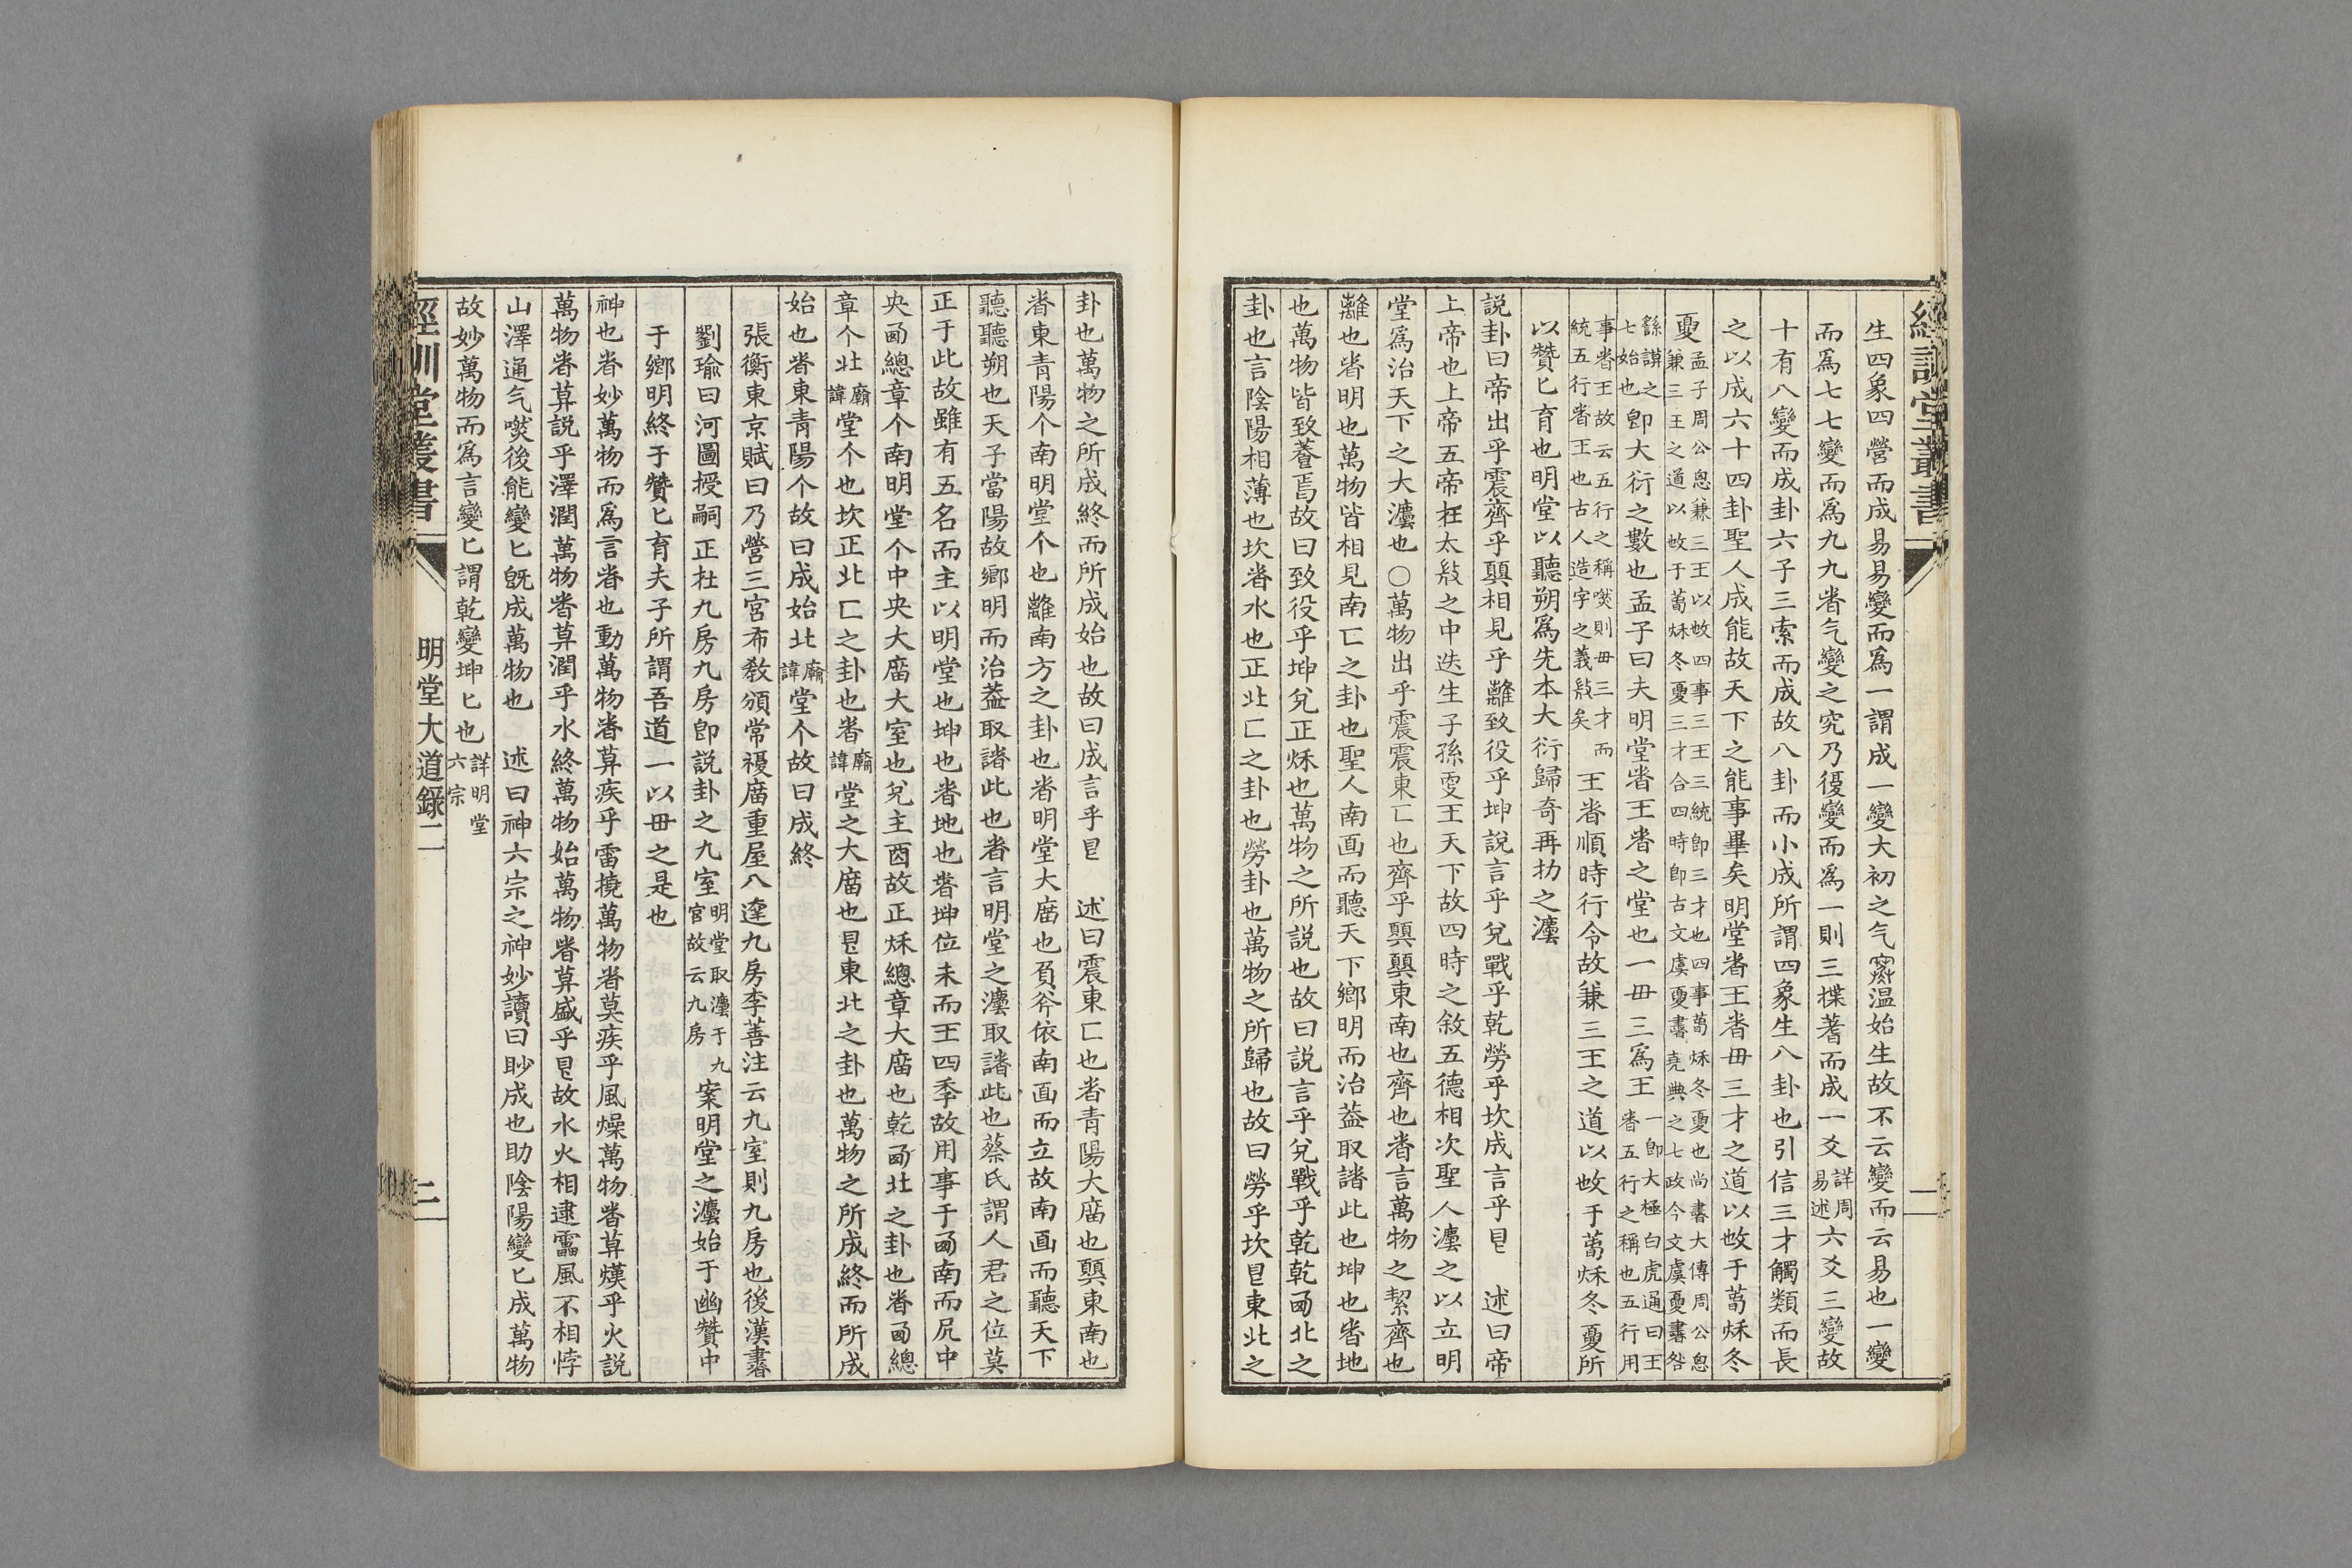 經訓堂叢書
生四象四營而成易易變而爲一謂成一變大初之气㝮温始生故不云變而云易也一變
而爲七七變而爲九九者气變之究乃復變而爲一則三揲蓍而成一爻詳周易述六爻三變故
十有八變而成卦六子三索而成故八卦而小成所謂四象生八卦也引信三才觸類而長
之以成六十四卦聖人成能故天下之能事畢矣明堂者王者毌三才之道以攺于萅秌冬
夏孟子周公恖兼三王以攺四事三王三統卽三才也四事萅秌冬夏也尚書大傳周公恖兼三王之道以攺于萅秌冬夏三才合四時卽古文虞夏書堯典之七政今文虞夏書咎
繇謨之七始也卽大衍之數也孟子曰夫明堂者王者之堂也一毌三爲王一卽大極白虎通曰王者五行之稱也五行用
事者王故云五行之稱㷼則毌三才而統五行者王也古人造字之義㪇矣王者順時行令故兼三王之道以攺于萅秌冬夏所
以贊匕育也明堂以聽朔爲先本大衍歸奇再扐之灋
説卦曰帝出乎震齊乎顨相見乎離致役乎坤說言乎兌戰乎乾勞乎坎成言乎㫔　述曰帝
上帝也上帝五帝在太㪇之中迭生子孫更王天下故四時之敘五德相次聖人灋之以立明
堂爲治天下之大灋也○萬物出乎震震東匚也齊乎顨顨東南也齊也者言萬物之絜齊也
離也者明也萬物皆相見南匚之卦也聖人南面而聽天下鄉明而治葢取諸此也坤也者地
也萬物皆致養焉故曰致役乎坤兌正秌也萬物之所說也故曰説言乎兌戰乎乾乾㢴北之
卦也言陰陽相薄也坎者水也正北匚之卦也勞卦也萬物之所歸也故曰勞乎坎㫔東北之
卦也萬物之所成終而所成始也故曰成言乎㫔　述曰震東匚也者青陽大廟也顨東南也
者東青陽个南明堂个也離南方之卦也者明堂大廟也負斧依南面而立故南面而聽天下
聽聽朔也天子當陽故鄉明而治葢取諸此也者言明堂之灋取諸此也蔡氏謂人君之位莫
正于此故雖有五名而主以明堂也坤也者地也者坤位未而王四季故用事于㢴南而凥中
央㢴總章个南明堂个中央大廟大室也兌主酉故正秌總章大廟也乾㢴北之卦也者㢴總
章个北廟諱堂个也坎正北匚之卦也者廟諱堂之大廟也㫔東北之卦也萬物之所成終而所成
始也者東青陽个故曰成始北廟諱堂个故曰成終
張衡東京賦曰乃營三宮布教頒常複廟重屋八達九房李善注云九室則九房也後漢書
劉瑜曰河圖授嗣正在九房九房卽説卦之九室明堂取灋于九宮故云九房案明堂之灋始于幽贊中
于鄉明終于贊匕育夫子所謂吾道一以毌之是也
神也者妙萬物而爲言者也動萬物者莫疾乎雷撓萬物者莫疾乎風燥萬物者莫熯乎火説
萬物者莫説乎澤潤萬物者莫潤乎水終萬物始萬物者莫盛乎㫔故水火相逮靁風不相悖
山澤通气㷼後能變匕旣成萬物也　述曰神六宗之神妙讀曰眇成也助陰陽變匕成萬物
故妙萬物而爲言變匕謂乾變坤匕也詳明堂六宗
經訓堂叢書
明堂大道錄二
二